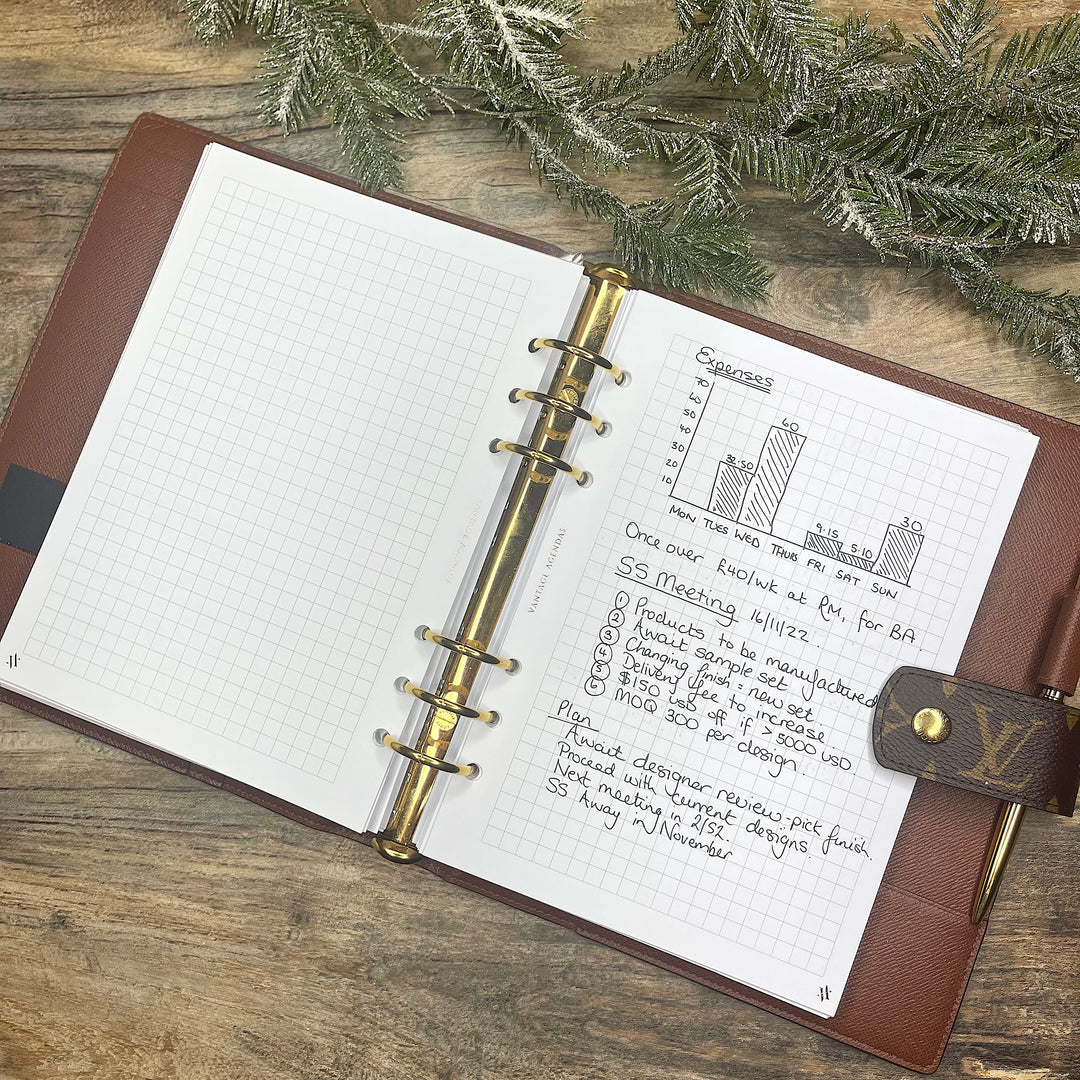 Expenses
70
60
50
40
30
20
10
32.50
60
9.15
5.10
30
MON TUES WED THURS FRI SAT SUN
Once over £40/wk at RM, for BA
SS Meeting 16/11/22
① Products to be manufactured
② Await sample set
③ Changing finish = new set
④ Delivery fee to increase
⑤ $150 USD off if >5000 USD
⑥ MOQ 300 per design
Plan
Await designer review - pick finish.
Proceed with current designs.
Next meeting in 2/52.
SS Away in November
VANTAGE AGENDAS
LV